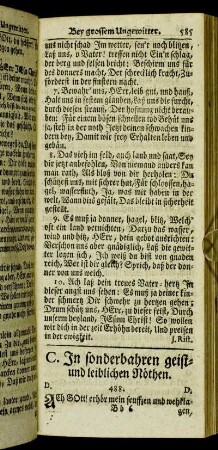 Bey grossem Ungewitter. 585
uns nicht schad Im wetter, sen'r noch blitzen,
Laß uns, o Vater! treffen nicht Die schlag, der
berg und felsen bricht: Beschirm uns für
des donners macht, Der schrecklich kracht, Zu-
förderst in der finstern nacht.
7. Bewahr' uns, HErr, leib, gut, und hauß,
Halt uns in festem glauben, Laß uns die furcht,
durch diesen strauß, Der hoffnung nicht berau-
ben: Für einem bösen schnellen tod Behüt uns,
ja, rett in der noth Jetzt deinen schwachen kinder
bey, Damit wir frey Erhalten leben und
8. Das vieh im feld, auch land und saat, Sey
dir jetzt anbefohlen, Von niemand anders kan
man rath, Als bloß von dir herholen: Du
schützest uns, wir fahren hin, Für schlossen, ha-
gel, wasserfluth, Ja, was wir haben in der
welt, Wann dirs gefält, Das bleibt in sicherheit
gestellt.
9. Es muß ja donner, hagel, blitz, Welch'
ist ein land vernichten, Darzu das wasser,
wind und hitz, HErr, dein gebot ausrichten:
Verschon uns aber gnädiglich, Laß die gewit-
ter legen sich, Ach hilff, du bist doch von gnaden
reich, Wer ist dir gleich? Sprich, daß der don-
ner von uns weich.
10. Ach laß dein treues Vater-hertz In
dieser angst uns sehen: Es muß ja deiner kin-
der schmertz Dir schwehr zu hertzen gehen:
Drum schütz uns, HErr, zu dieser frist, Durch
unsern heyland, JEsum Christ! So wollen
wir dich in der zeit Erhöhn bereit, Und preisen
in der ewigkeit. J. Rist.
C. In sonderbahren geist-
und leiblichen Nöthen.
D. 488. D.
ACh GOtt! erhör mein seuffzen und wehkla-
Bb 6 gen,